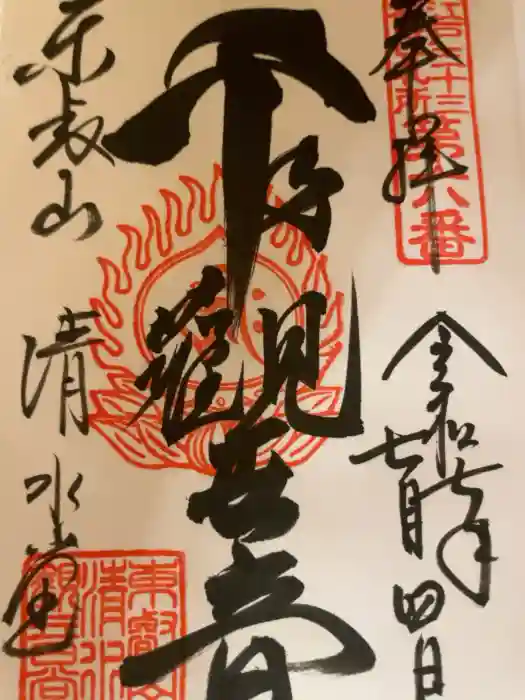 奉拝
令和七年
七月四日
千手觀世音
東叡山
清水堂
第六番
東叡山
清水
觀音